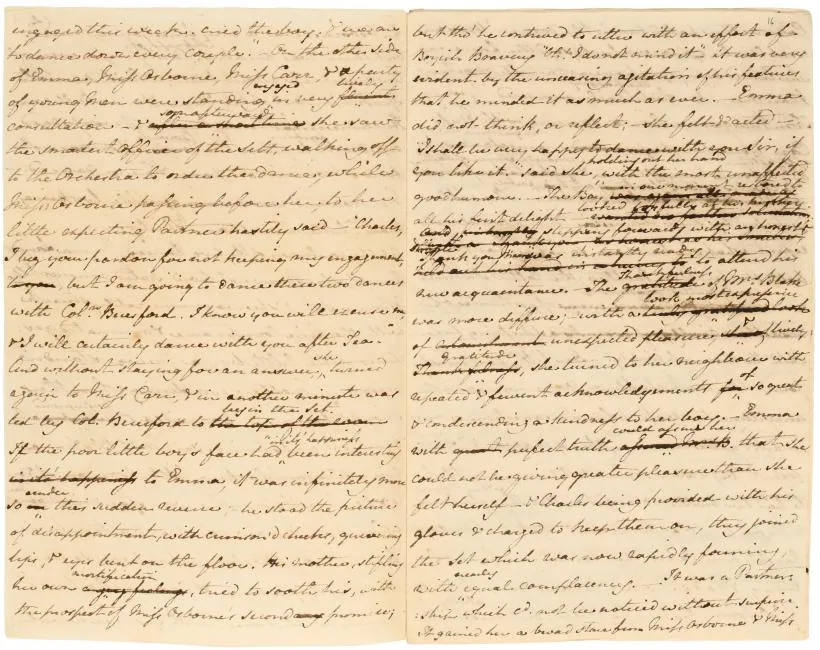 engaged this week, cried the boy, & we are
to dance down every couple." - On the other side
of Emma, Miss Osborne, Miss Carr, & a party
of young Men were standing engaged in very lively
consultation - & soon afterwards she saw
the smartest officer of the Sett, walking off
to the Orchestra to order the dance, while
Miss Osborne passing before her, to her
little expecting Partner hastily said - "Charles,
I beg your pardon for not keeping my engagement,
but I am going to dance these two dances
with Coln Beresford. I know you will excuse me,
& I will certainly dance with you after Tea."
And without staying for an answer, she turned
again to Miss Carr, & in another minute was
led by Col. Beresford to begin the Set.
If the poor little boy's face had in its happiness been interesting
to Emma, it was infinitely more
so under this sudden reverse; - he stood the picture
of disappointment, with crimson'd cheeks, quivering
lips, & eyes bent on the floor. His mother, stifling
her own mortification, tried to sooth his, with
the prospect of Miss Osborne's second promise;
16
but tho' he contrived to utter with an effort of
Boyish Bravery "Oh! I do not mind it" - it was very
evident by the unceasing agitation of his features
that he minded it as much as ever. - Emma
did not think, or reflect; - she felt & acted -.
"I shall be very happy to dance with you Sir, if
you like it." said she, holding out her hand with the most unaffected
good humour. - The Boy in one moment restored to
all his first delight - looked joyfully at his Mother
and stepping forwards with an honest &
simple Thank you Maam was instantly ready to attend his
new acquaintance. - The Thankfulness of Mrs Blake
was more diffuse; - with a look, most expressive
of unexpected pleasure, & lively
gratitude, she turned to her neighbour with
repeated & fervent acknowledgements of so great
& condescending a kindness to her boy. - Emma
with perfect truth could assure her that she
could not be giving greater pleasure than she
felt herself - & Charles being provided with his
gloves & charged to keep them on, they joined
the Set which was now rapidly forming,
with nearly equal complacency. - It was a Partner:
:ship which cd not be noticed without surprise.
It gained her a broad stare from Miss Osborne & Miss